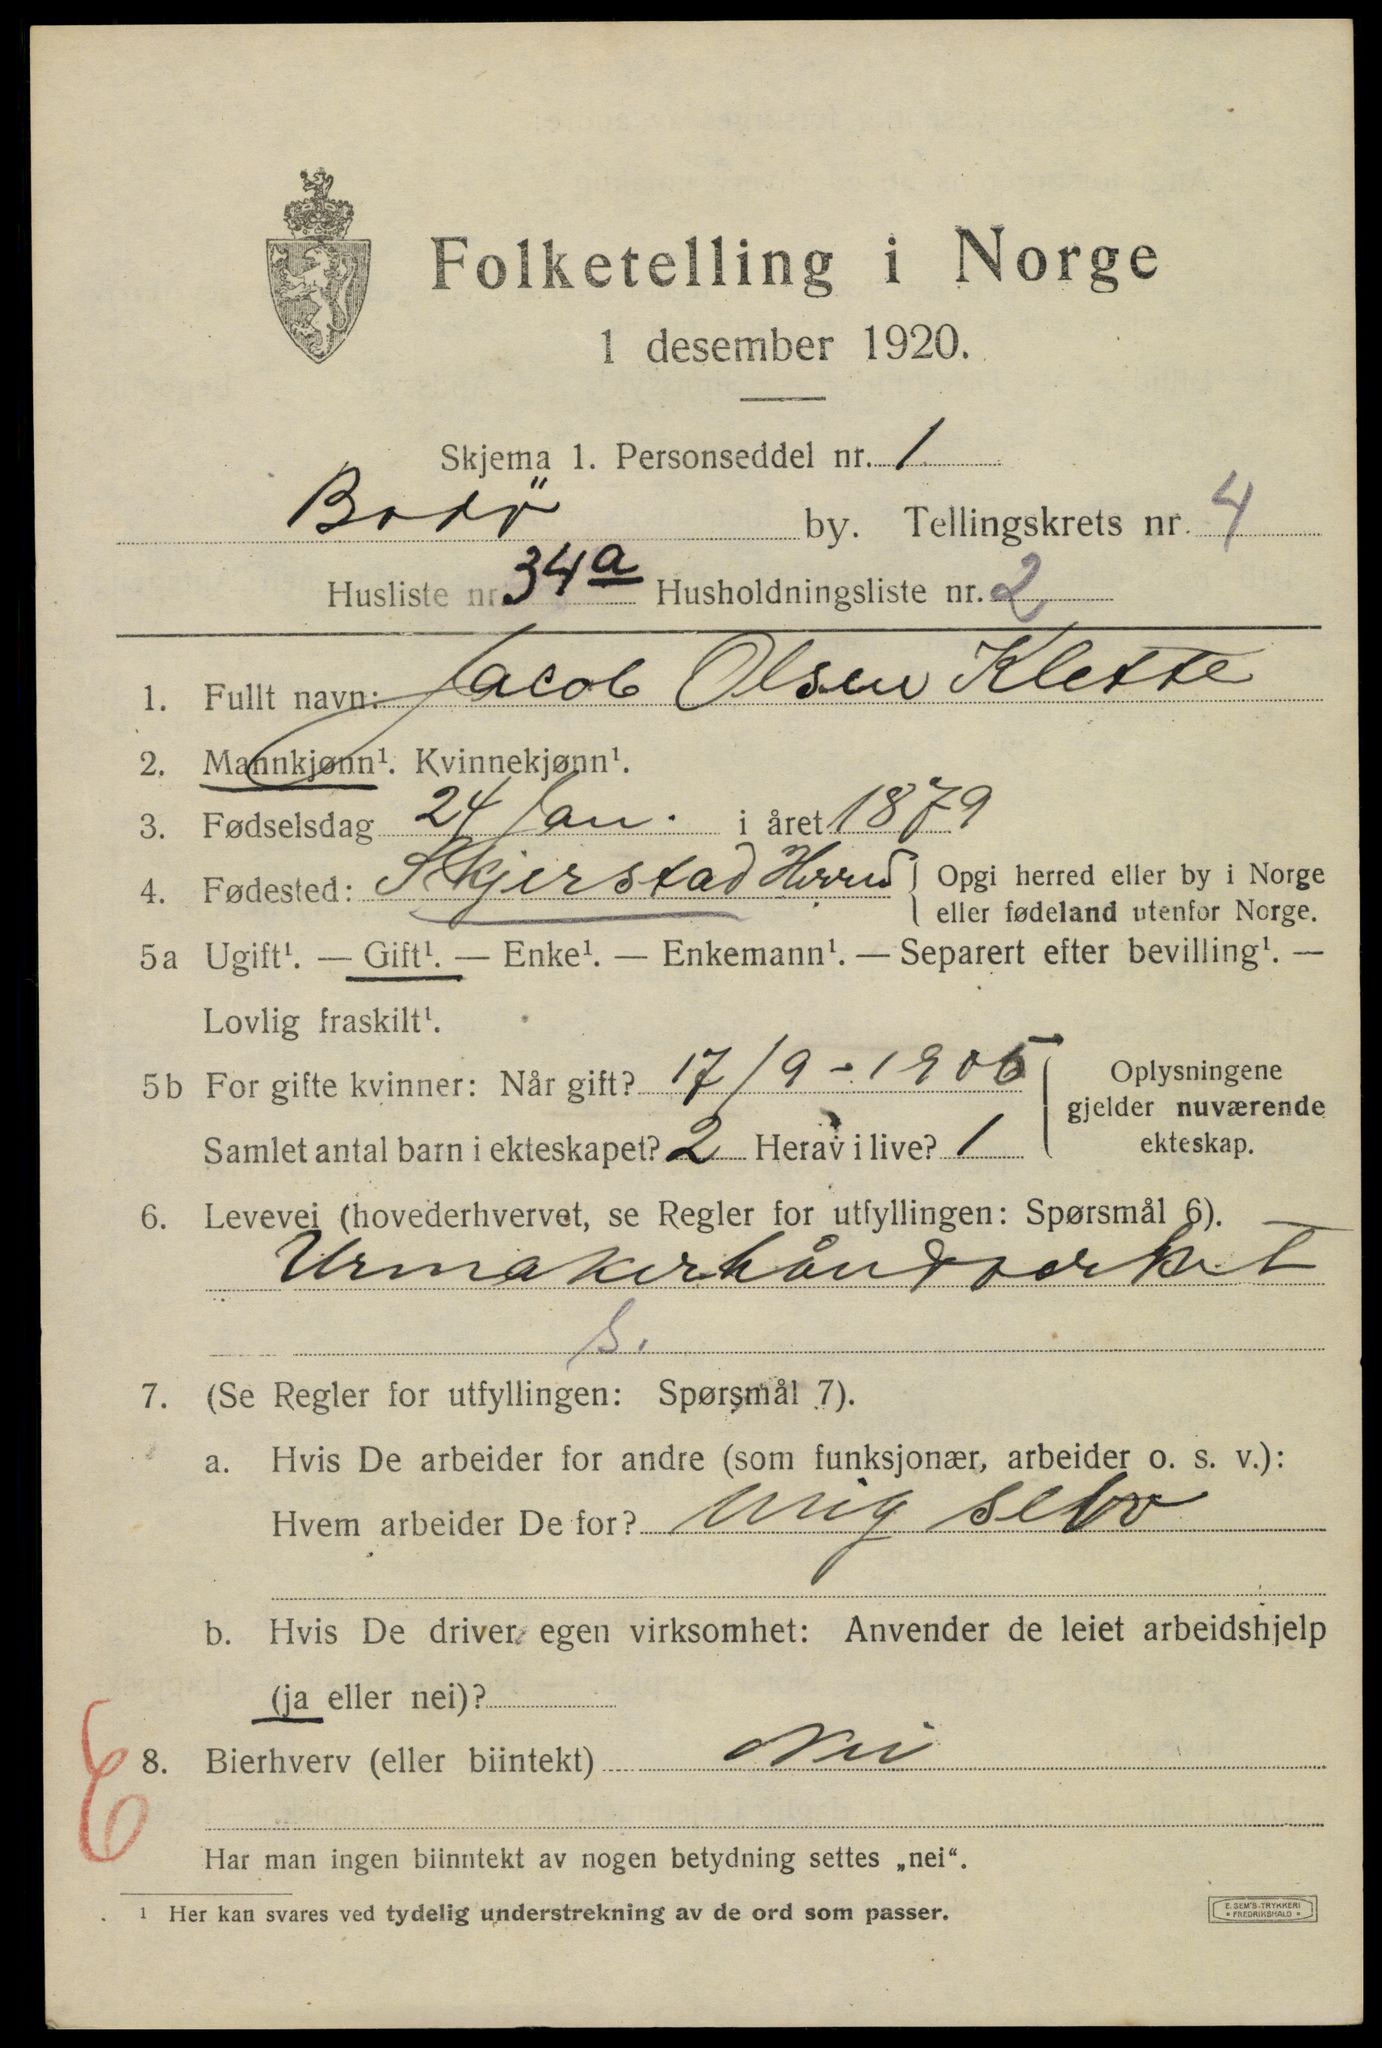 Folketelling i Norge
1 desember 1920.
Skjema 1. Personseddel nr. 1
Bodö by. Tellingskrets nr. 4
Husliste nr. 34a Husholdningsliste nr. 2
1. Fullt navn: Jacob Olsen Klette
2. Mannkjønn¹. Kvinnekjønn¹.
3. Fødselsdag 24 Jan. i året 1879
4. Fødested: Skjerstad Herred Opgi herred eller by i Norge
eller fødeland utenfor Norge.
5a Ugift¹. — Gift¹. — Enke¹. — Enkemann¹. — Separert efter bevilling¹. —
Lovlig fraskilt¹.
5b For gifte kvinner: Når gift? 17/9-1905 Oplysningene
gjelder nuværende
ekteskap.
Samlet antal barn i ekteskapet? 2 Herav i live? 1
6. Levevei (hovederhvervet, se Regler for utfyllingen: Spørsmål 6).
Urmakerhåndverket
S.
7. (Se Regler for utfyllingen: Spørsmål 7).
a. Hvis De arbeider for andre (som funksjonær, arbeider o. s. v.):
Hvem arbeider De for? Mig selv
b. Hvis De driver egen virksomhet: Anvender de leiet arbeidshjelp
(ja eller nei)?
8. Bierhverv (eller biintekt) Nei
Har man ingen biinntekt av nogen betydning settes „nei“.
¹ Her kan svares ved tydelig understrekning av de ord som passer.
E. SEM'S TRYKKERI
* FREDRIKSHALD *